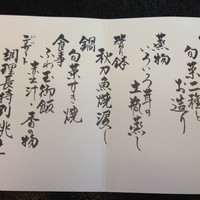 お造り
蒸物
いろいろ茸の
土瓶蒸し
替り鉢
秋刀魚焼浸し
鍋
旬菜すき焼
食事
ふわ玉御飯
赤出汁 香の物
デザート
調理長特別